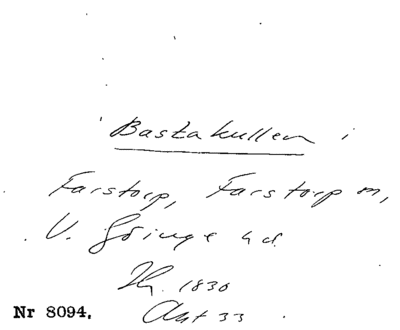 Bastakullen i
Farstorp, Farstorp sn,
V. Göinge hd.
Lh. 1830
Akt 33
Nr 8094.